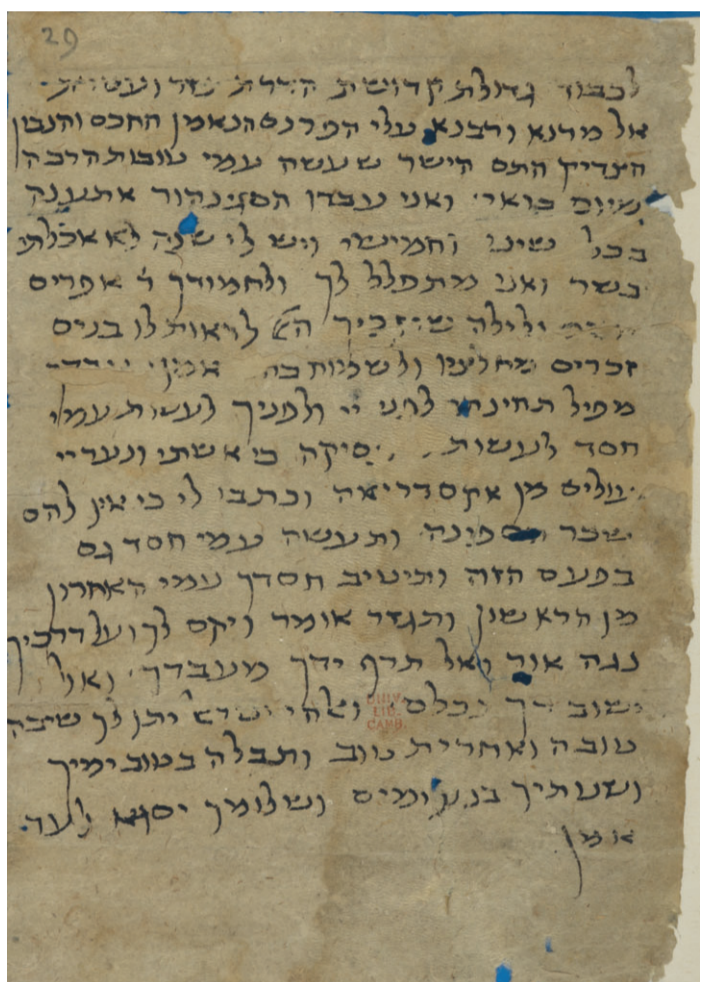 29
לכבוד גדולת קדושת הדרת נזר ועטרת
אל מרנא ורבנא עלי הפרנס הנאמן החכם והנבון
הצדיק התם הישר שעשה עמי טובות הרבה
מיום בואי ואני עבדו הסנ נהור אתענה
בכל שיני וחמישי ויש לי שנה לא אכלתי
בשר ואני מתפלל לך ולחמודך ר אפרים
ולילה שיזכיך הא לראות לו בנים
זכרים מחלציו ולשמוח בה אמן
מפיל תחינתי לפני ייי ולפניך לעשות עמי
חסד לעשות פסיקה כי אשתי ונעריי
עולים מן אלכסדריאה וכתבו לי כי אין להם
שכר הספינה ותעשה עמי חסד גם
בפעם הזה ותיטיב חסדך עמי האחרון
מן הראשון ותגזר אומר ויקם לך ועל דרכיך
נגה אור ואל תרף ידך מעבדך ואני
ריקם ואלהי ישראל יתן לך שיבה
טובה ואחרית טוב ותבלה בטוב ימיך
ושנותיך בנעימים ושלומך יסגא לעד
אמן
UNIV. LIB. CAMB.